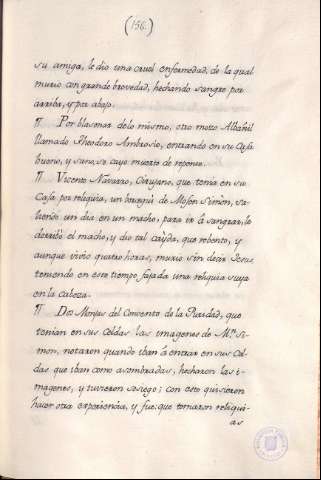 (156.)
su amiga, le dio una cruel enfermedad, de la qual
murio con grande brevedad, hechando sangre por
arriba, y por abajo.
¶ Por blasonar delo mismo, otro motto Albañil
llamado Theodoro Ambrosio, entrando en su Casa
bueno, y sano, se cayo muerto de repente.
¶ Vicente Navarro, Cirujano, que tenia en su
Casa por reliquia, un borcegui de Mosen Simon, sa-
liendo un dia en un macho, para ir à sangrar, le
derribò el macho, y dio tal caÿda, que rebento, y
aunque vivio quatro horas, murio sin decir Jesus
teniendo en este tiempo fajada una reliquia suya
en la cabeza.
¶ Dos Monjas del Convento de la Puridad, que
tenian en sus Celdas las imagenes de Mn. Si-
mon, notaron quando iban à entrar en sus Cel-
das que iban como asombradas, hecharon las i-
magenes, y tuvieron sosiego; con esto quisieron
hacer otra experiencia, y fue: que tomaron reliqui-
as